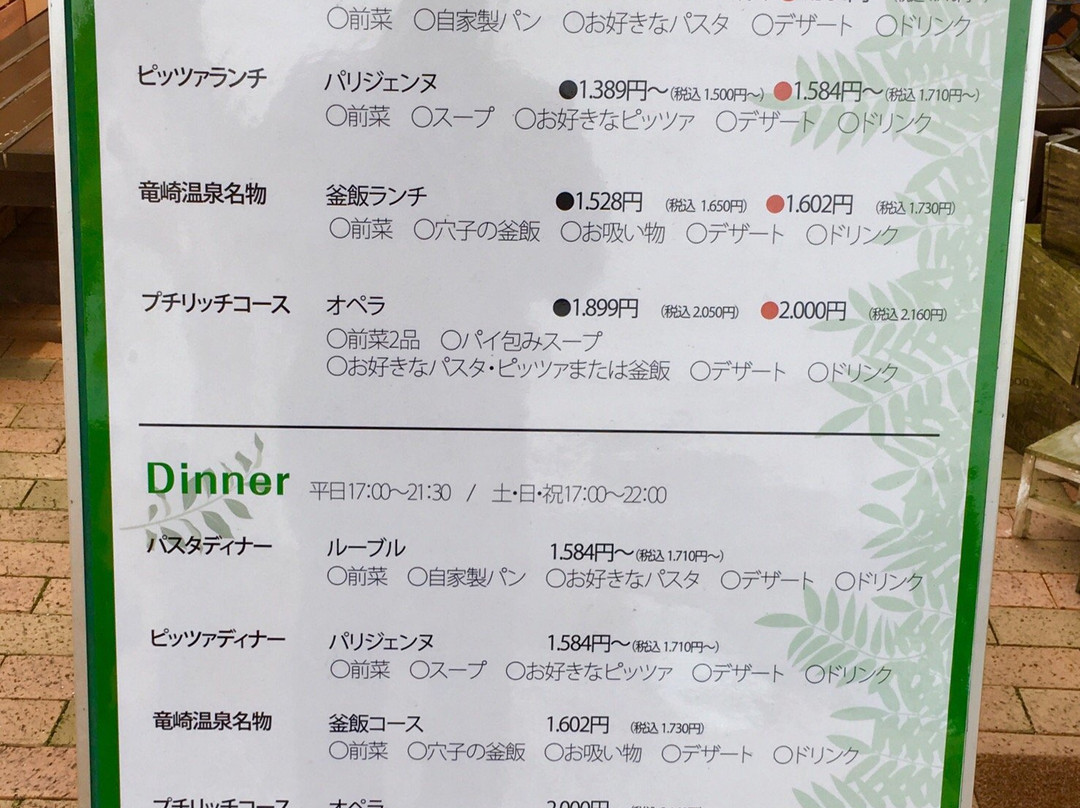 〇前菜 〇自家製パン 〇お好きなパスタ 〇デザート 〇ドリンク
ピッツァランチ パリジェンヌ ●1.389円～(税込 1.500円～) ●1.584円～(税込 1.710円～)
〇前菜 〇スープ 〇お好きなピッツァ 〇デザート 〇ドリンク
竜崎温泉名物 釜飯ランチ ●1.528円 (税込 1.650円) ●1.602円 (税込 1.730円)
〇前菜 〇穴子の釜飯 〇お吸い物 〇デザート 〇ドリンク
プチリッチコース オペラ ●1.899円 (税込 2.050円) ●2.000円 (税込 2.160円)
〇前菜2品 〇パイ包みスープ
〇お好きなパスタ・ピッツァまたは釜飯 〇デザート 〇ドリンク
Dinner 平日17:00～21:30 / 土・日・祝17:00～22:00
パスタディナー ルーブル 1.584円～(税込 1.710円～)
〇前菜 〇自家製パン 〇お好きなパスタ 〇デザート 〇ドリンク
ピッツァディナー パリジェンヌ 1.584円～(税込 1.710円～)
〇前菜 〇スープ 〇お好きなピッツァ 〇デザート 〇ドリンク
竜崎温泉名物 釜飯コース 1.602円 (税込 1.730円)
〇前菜 〇穴子の釜飯 〇お吸い物 〇デザート 〇ドリンク
プチリッチコース オペラ 2.000円